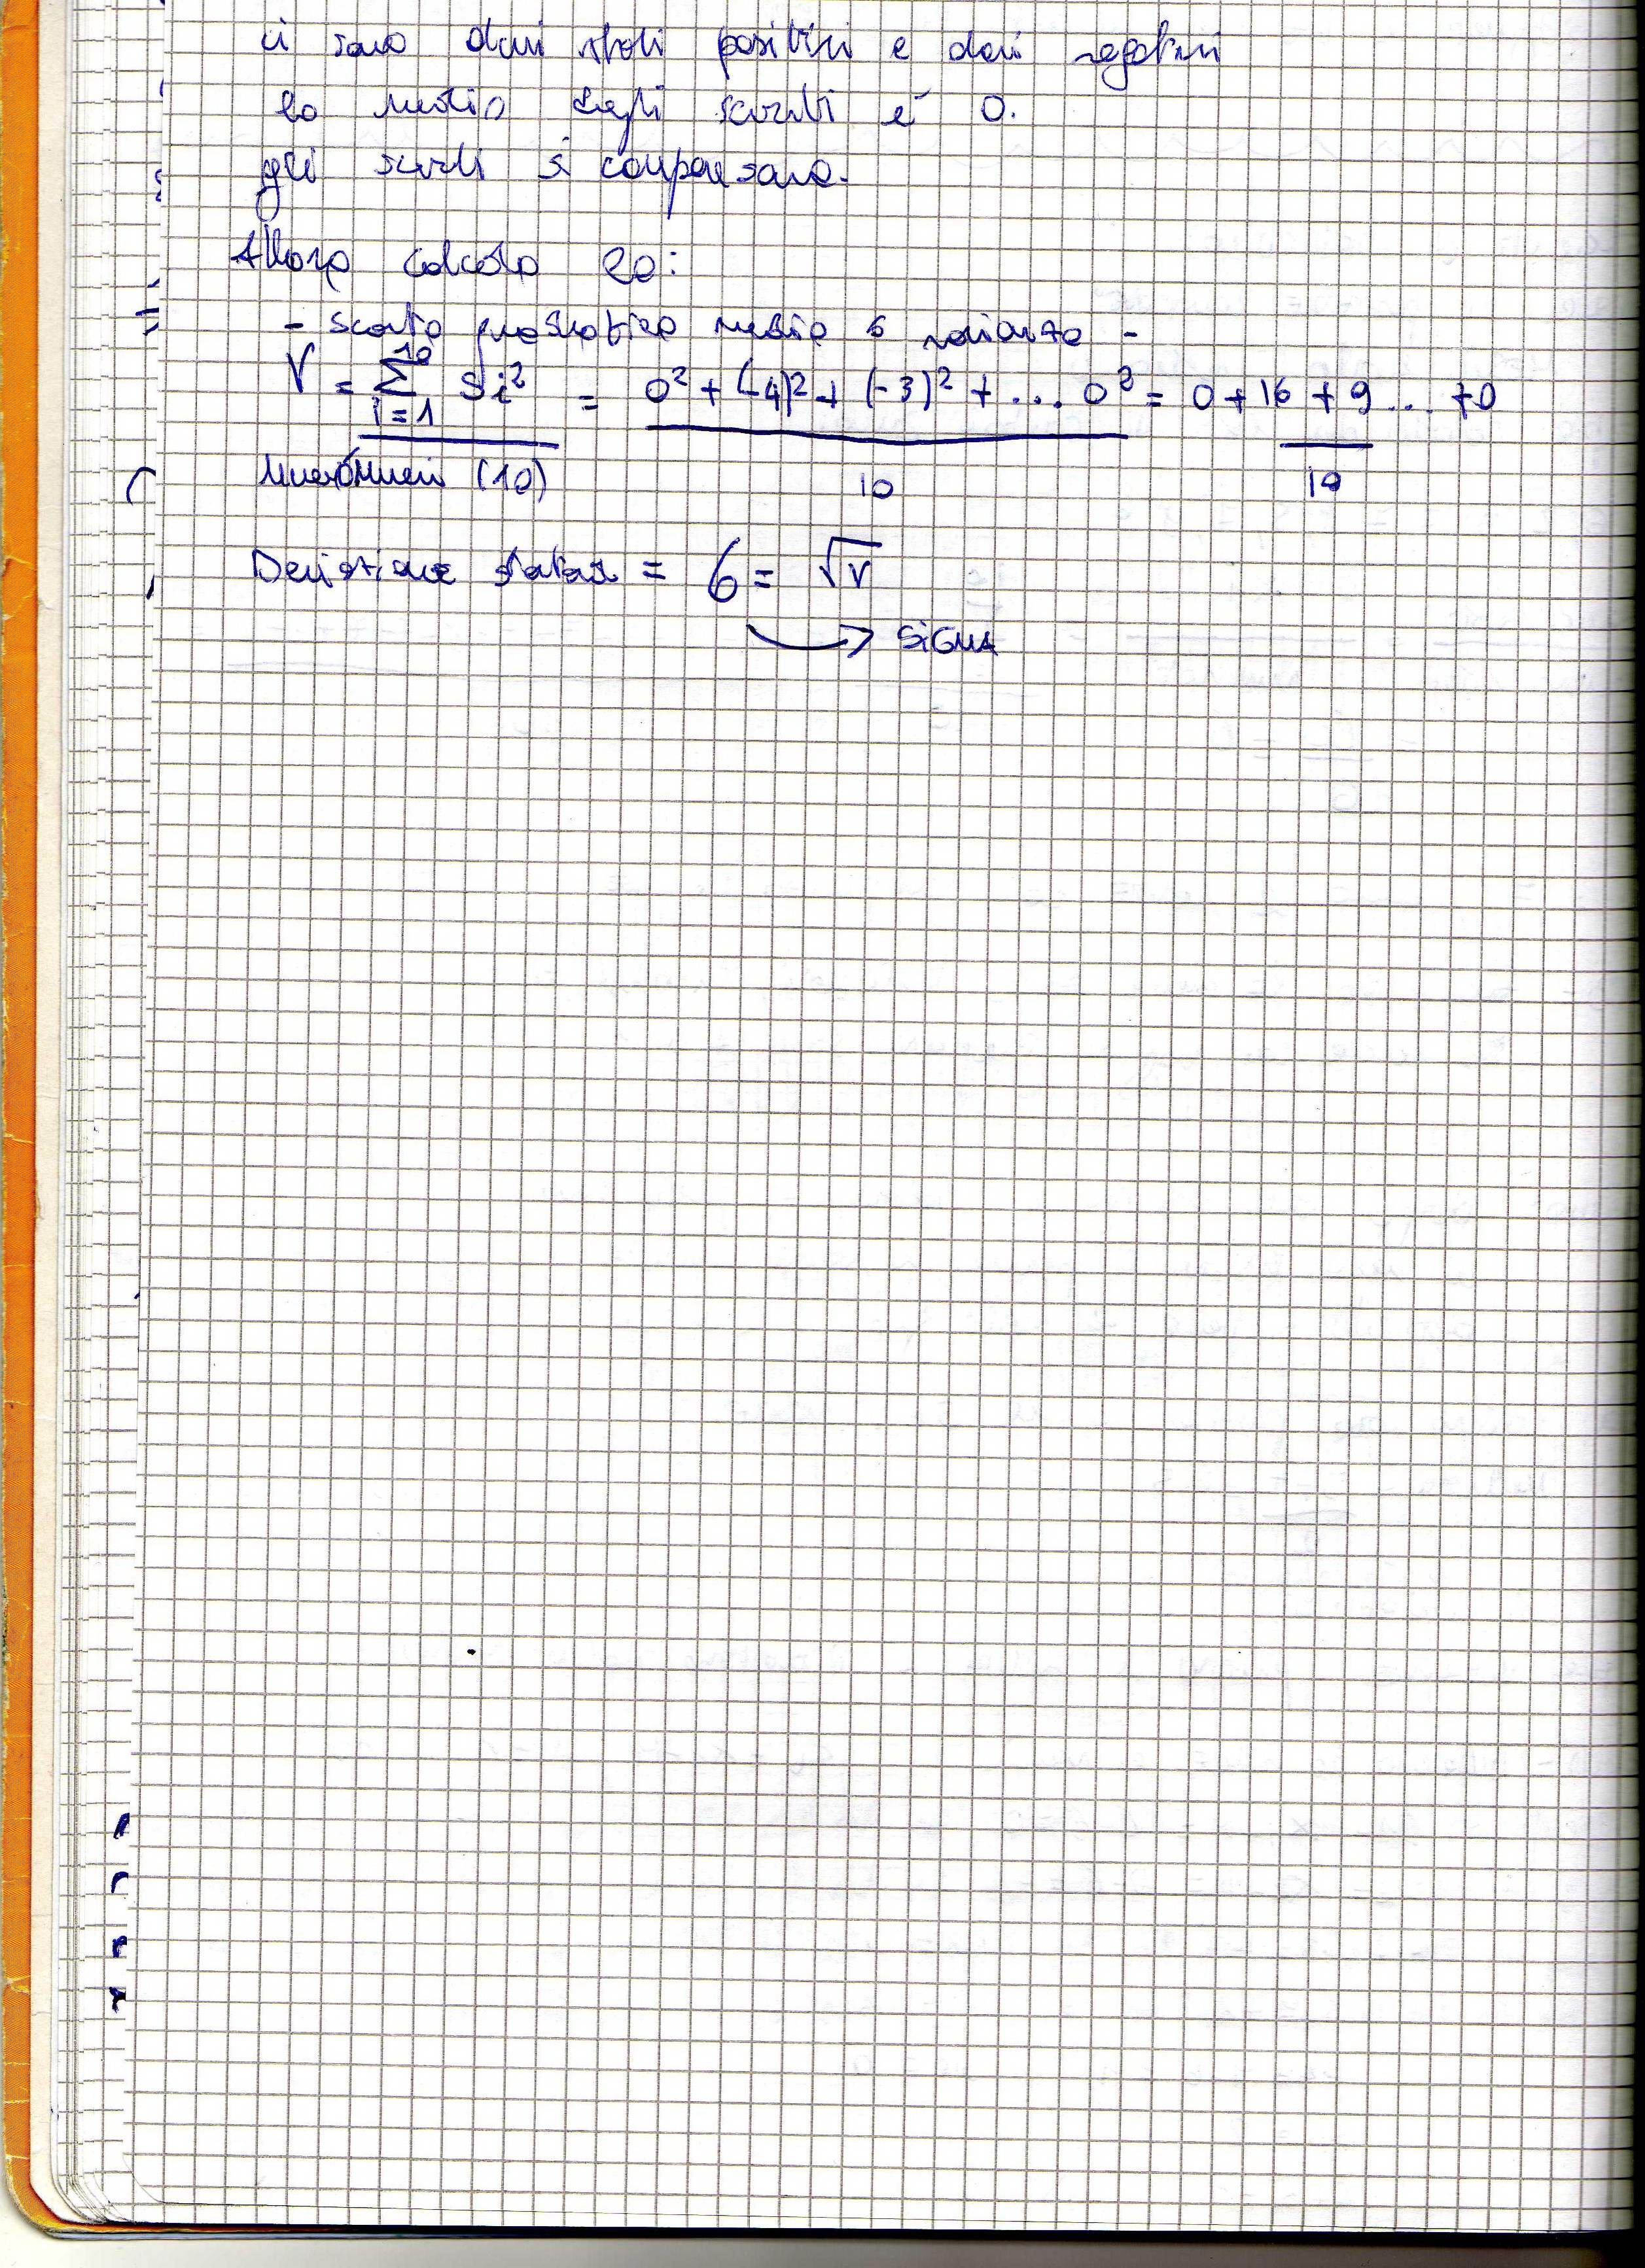 ci sono dani stati positivi e dani negativi
la media degli scarti è 0.
gli scarti si compensano.
Allora calcolo la:
- scarto quadratico medio o varianza -
V = 10 Σ i=1 si² = 0² + (-4)² + (-3)² + ... 0² = 0 + 16 + 9 ... + 0
(10) 10 10
Deviazione = σ = √V
→ SIGMA